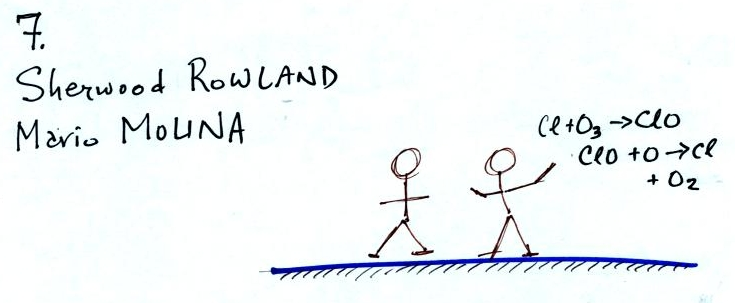 7.
Sherwood ROWLAND
Mario MOLINA
Cl+O₃→ClO
ClO+O→Cl
+O₂